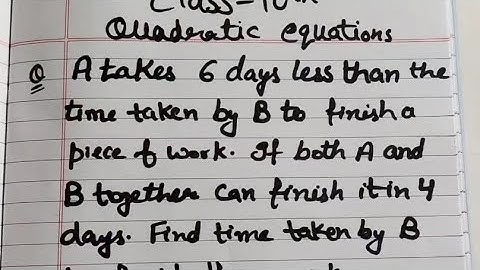 Class-10th
Quadratic equations
Q A takes 6 days less than the
time taken by B to finish a
piece of work. If both A and
B together can finish it in 4
days. Find time taken by B